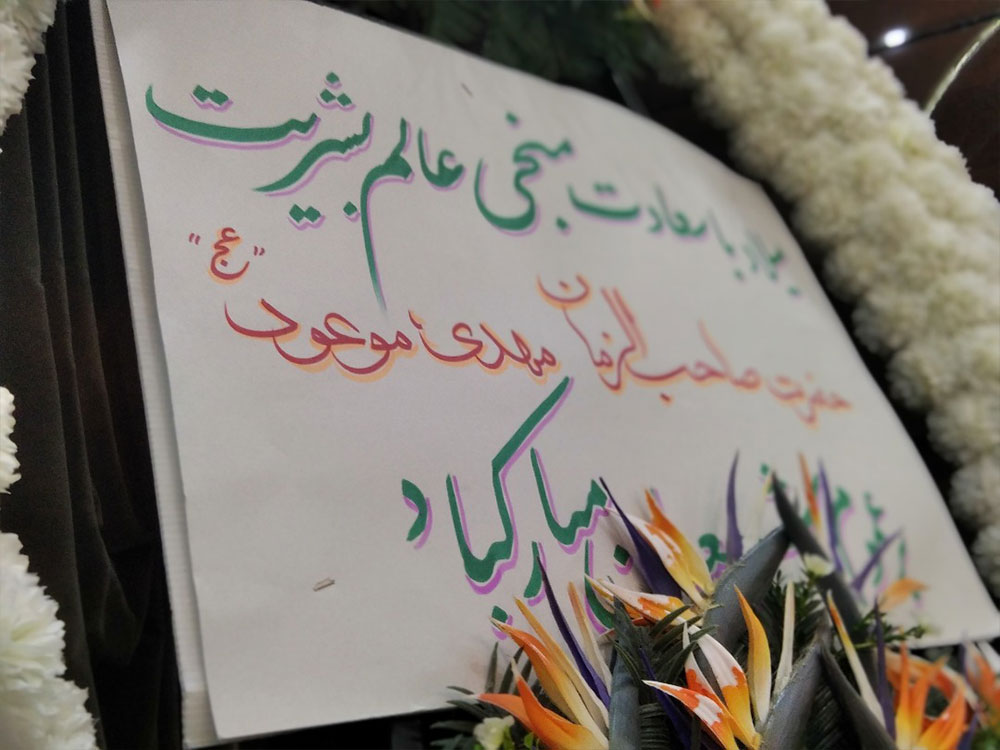 میلاد با سعادت منجی عالم بشریت
حضرت صاحب الزمان مهدی موعود "عج"
مبارکباد